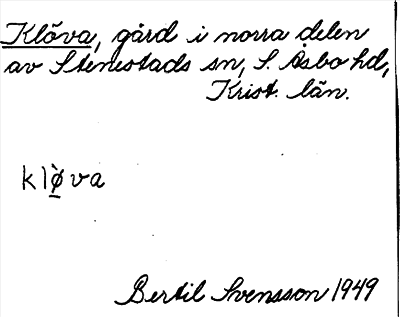 Klöva, gård i norra delen
av Stenestads sn, S. Åsbo hd,
Krist. län.
klø̱̀va
Bertil Svensson 1949